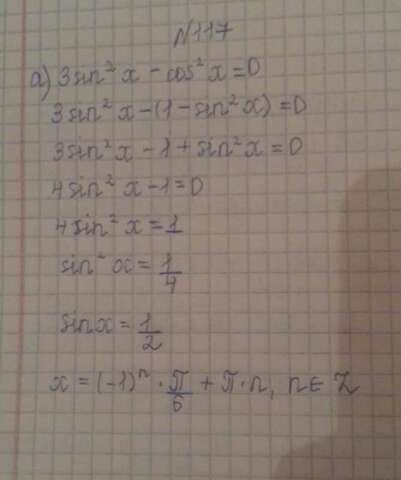 №117
а) 3sin²x - cos²x = 0
3sin²x - (1 - sin²x) = 0
3sin²x - 1 + sin²x = 0
4sin²x - 1 = 0
4sin²x = 1
sin²x = 1/4
sinx = 1/2
x = (-1)ⁿ · π/6 + π·n, n ∈ Z